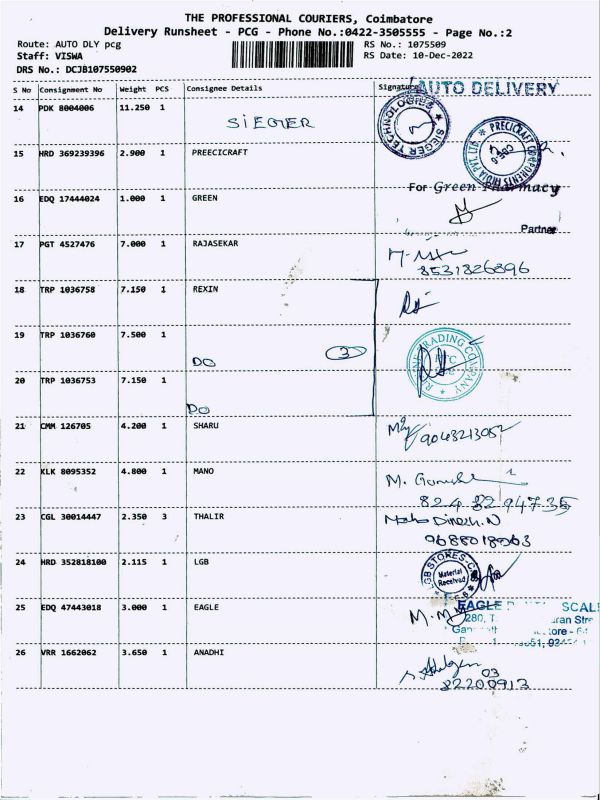 THE PROFESSIONAL COURIERS, Coimbatore
Delivery Runsheet - PCG - Phone No.:0422-3505555 - Page No.:2
Route: AUTO DLY pcg RS No.: 1075509
Staff: VISWA RS Date: 10-Dec-2022
DRS No.: DCJB107550902
S No Consignment No Weight PCS Consignee Details Signature AUTO DELIVERY
14 PDK 8004006 11.250 1 SIEGER SIEGER TECHNOLOGIES
15 HRD 369239396 2.900 1 PREECICRAFT PRECICRAFT COMPONENTS INDIA PVT. LTD. CBE-6
16 EDQ 17444024 1.000 1 GREEN For Green Pharmacy
Partner
17 PGT 4527476 7.000 1 RAJASEKAR
8531826896
18 TRP 1036758 7.150 1 REXIN
19 TRP 1036760 7.500 1 DO 3 TRADING COMPANY
20 TRP 1036753 7.150 1 DO
21 CMM 126705 4.200 1 SHARU 9043213052
22 KLK 8095352 4.800 1 MANO M.
82482 94735
23 CGL 30014447 2.350 3 THALIR Dinesh.N
9688018963
24 HRD 352818100 2.115 1 LGB LGB STORES Material Received
25 EDQ 47443018 3.000 1 EAGLE EAGLE SCAL
280, T. uran Stre
Gan tore - 64
26 VRR 1662062 3.650 1 ANADHI
03
82200913